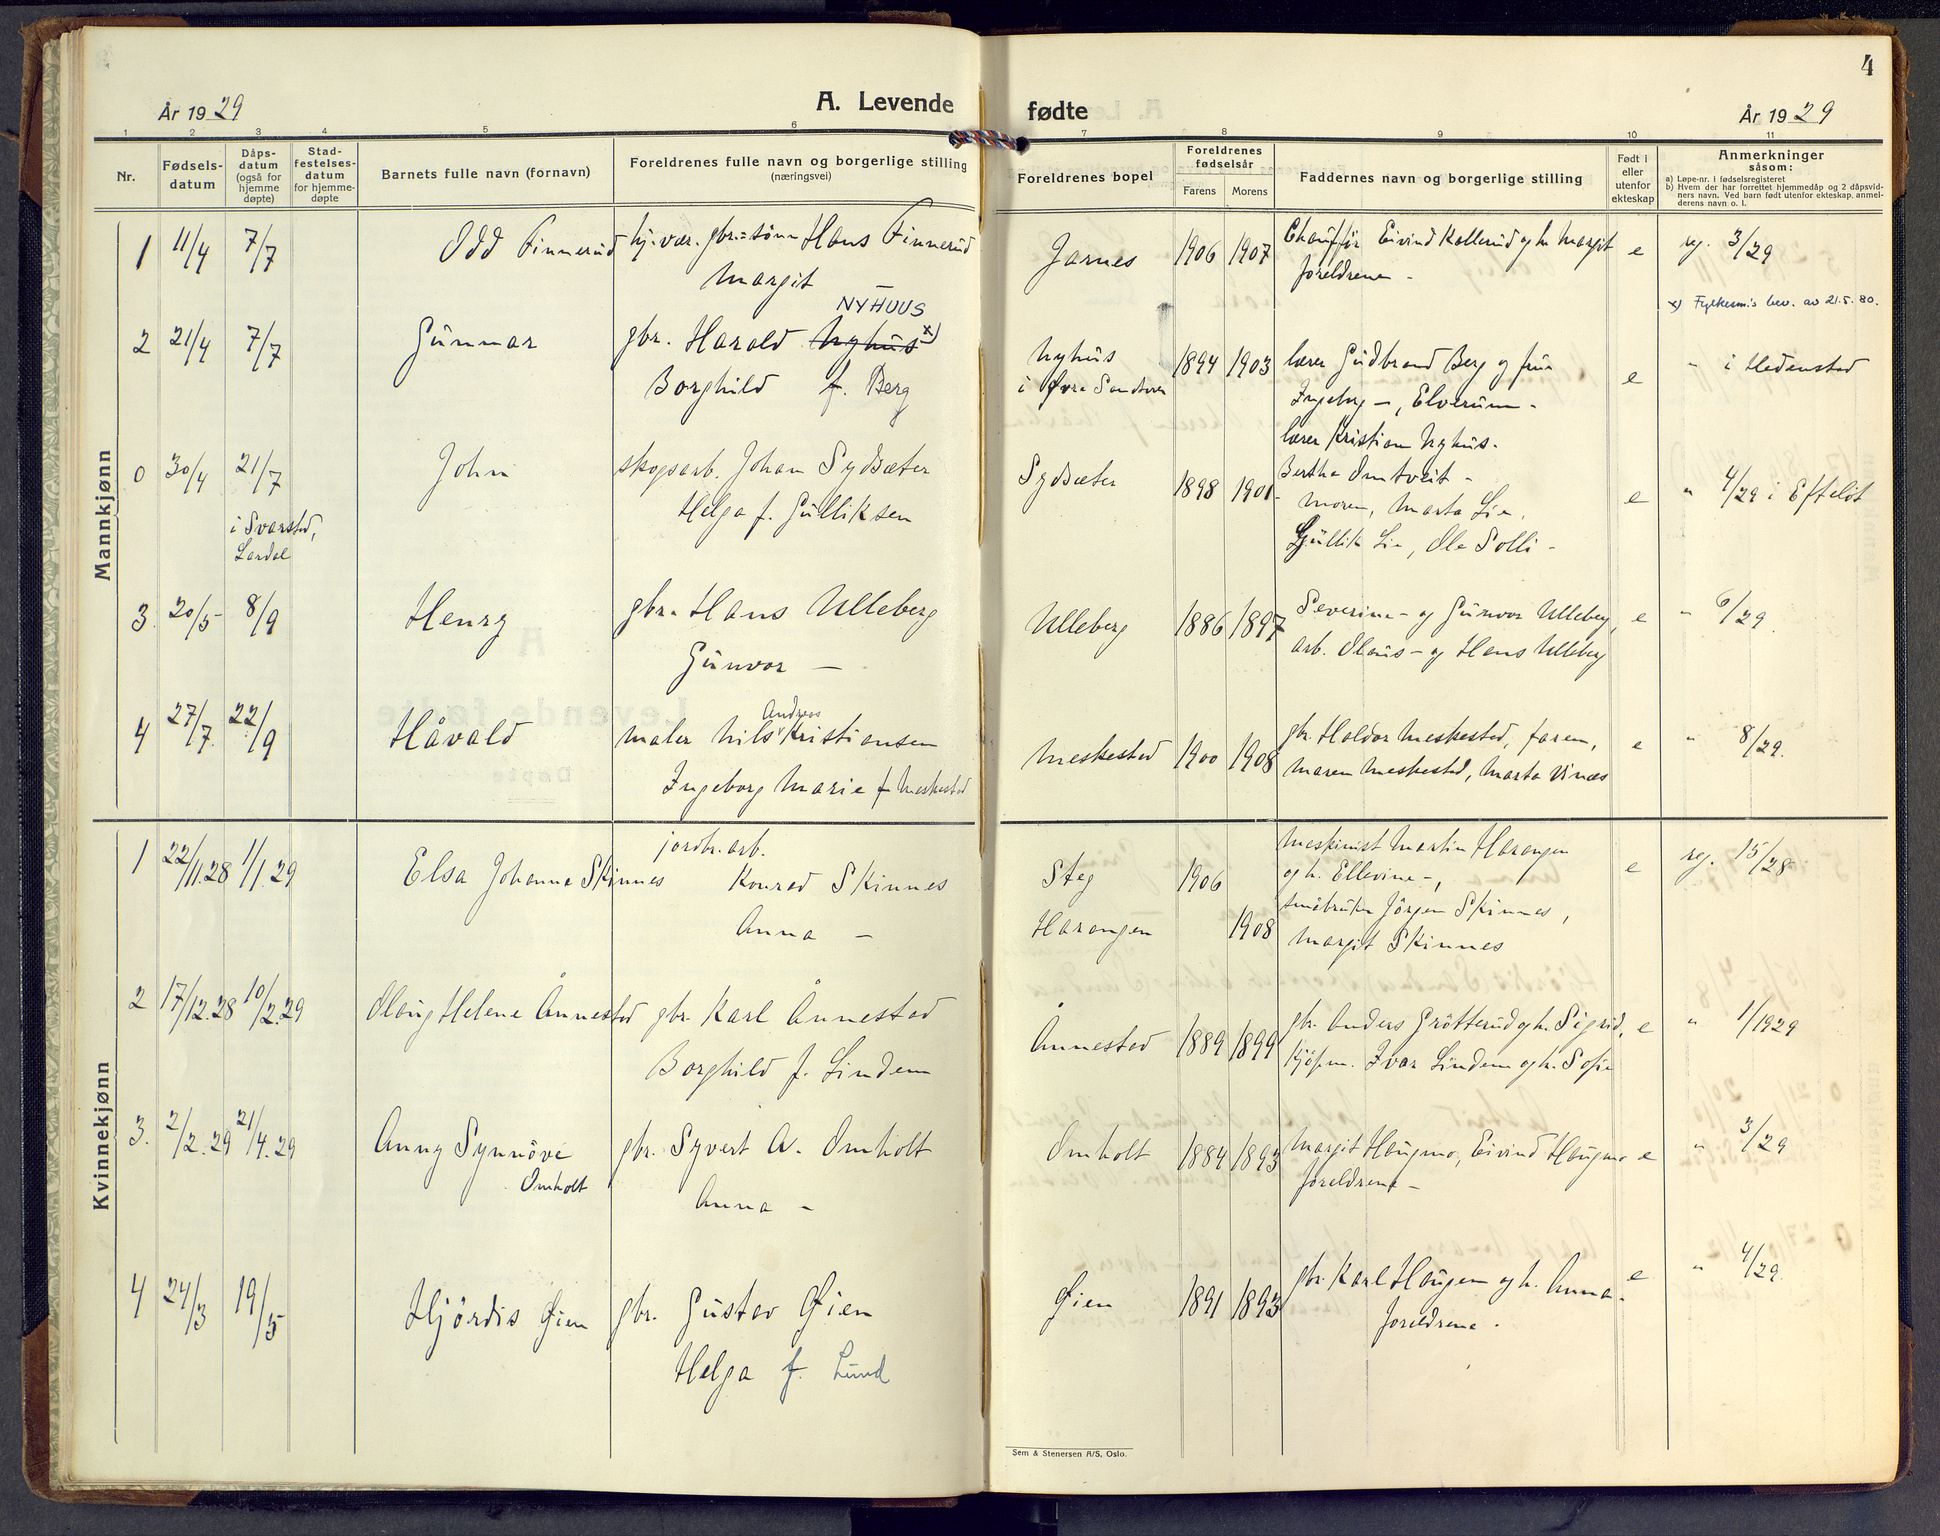 4
År 1929
A. Levende
fødte
År 1929
1 2 3 4 5 6 7 8 9 10 11
Nr.
Fødsels-
datum
Dåps-
datum
(også for
hjemme
døpte)
Stad-
festelses-
datum
for hjemme-
døpte
Barnets fulle navn (fornavn)
Foreldrenes fulle navn og borgerlige stilling
(næringsvei)
Foreldrenes bopel
Foreldrenes
fødselsår
Farens
Morens
Faddernes navn og borgerlige stilling
Født i
eller
utenfor
ekteskap
Anmerkninger
såsom:
a) Løpe-nr. i fødselsregisteret
b) Hvem der har forrettet hjemmedåp og 2 dåpsvid-
ners navn. Ved barn født utenfor ekteskap. anmel-
derens navn o. l.
Mannkjønn
1 11/4 7/7 Odd Finnerud hj. vær. gbr.-sønn Hans Finnerud Jarnes 1906 1907 Chauffør Eivind Kollerud og h. Margit e rg. 3/29
Margit —
foreldrene -
NYHUUS
x) Fylkesm's bev. av 21.5.80.
2 21/4 7/7 Gunnar gbr. Harald Nyhus x) Nyhus 1894 1903 lærer Gudbrand Berg og frue e " i Hedenstad
Borghild f. Berg i Øvre Sandsvær Ingeborg —, Elverum -
lærer Kristian Nyhus.
0 30/4 21/7 John skogsarb. Johan Sydsæter Sydsæter 1898 1901 Bertha Omtveit - e " 4/29 i Efteløt
i Svarstad,
Lardal
Helga f. Gulliksen
moren, Marta Lie,
Gullik Lie, Ole Solli -
3 20/5 8/9 Henry gbr. Hans Ulleberg Ulleberg 1886 1897 Severine - og Gunvor Ulleberg, e " 6/29
Gunvor —
arb. Olaus - og Hans Ulleberg
Andreas
4 27/7 22/9 Håvald maler Nils Kristiansen Meskestad 1900 1908 gbr. Haldor Meskestad, faren, e " 8/29.
Ingeborg Marie f Meskestad
Maren Meskestad, Marta Vinæs
Kvinnekjønn
jordbr. arb.
1 22/11.28 1/1.29 Elsa Johanna Skinnes Konrad Skinnes Steg 1906 Maskinist Martin Harangen e reg. 15/28
og h. Ellevine -,
Anna — Harangen 1908 småbruker Jörgen Skinnes,
Margit Skinnes
2 17/12.28 10/2.29 Olaug Helene Ånnestad gbr. Karl Ånnestad Ånnestad 1889 1899 gbr. Anders Grötterud og h. Sigrid, e " 1/1929
Borghild f. Lindem
kjøpm. Ivar Lindem og h. Sofie
3. 2/2.29 21/4.29 Anny Synnöve gbr. Syvert A. Omholt Omholt 1884 1893 Margit Haugmo, Eivind Haugmo e " 3/29
Omholt Anna - foreldrene -
4 24/3 19/5 Hjördis Øien gbr. Gustav Øien Øien 1891 1893 gbr. Karl Haugen og h. Anna - e " 4/29.
Helga f. Lund foreldrene.
Sem & Stenersen A/S, Oslo.